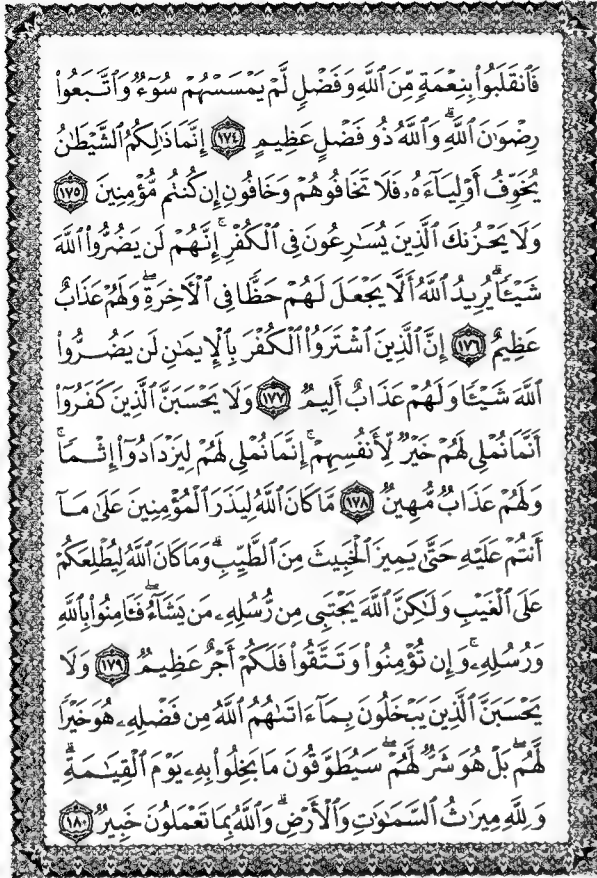 فَٱنقَلَبُوا۟ بِنِعْمَةٍ مِّنَ ٱللَّهِ وَفَضْلٍ لَّمْ يَمْسَسْهُمْ سُوٓءٌ وَٱتَّبَعُوا۟
رِضْوَٰنَ ٱللَّهِ ۗ وَٱللَّهُ ذُو فَضْلٍ عَظِيمٍ ١٧٤ إِنَّمَا ذَٰلِكُمُ ٱلشَّيْطَٰنُ
يُخَوِّفُ أَوْلِيَآءَهُۥ فَلَا تَخَافُوهُمْ وَخَافُونِ إِن كُنتُم مُّؤْمِنِينَ ١٧٥
وَلَا يَحْزُنكَ ٱلَّذِينَ يُسَٰرِعُونَ فِى ٱلْكُفْرِ ۚ إِنَّهُمْ لَن يَضُرُّوا۟ ٱللَّهَ
شَيْـًٔا ۗ يُرِيدُ ٱللَّهُ أَلَّا يَجْعَلَ لَهُمْ حَظًّا فِى ٱلْءَاخِرَةِ ۖ وَلَهُمْ عَذَابٌ
عَظِيمٌ ١٧٦ إِنَّ ٱلَّذِينَ ٱشْتَرَوُا۟ ٱلْكُفْرَ بِٱلْإِيمَٰنِ لَن يَضُرُّوا۟
ٱللَّهَ شَيْـًٔا وَلَهُمْ عَذَابٌ أَلِيمٌ ١٧٧ وَلَا يَحْسَبَنَّ ٱلَّذِينَ كَفَرُوٓا۟
أَنَّمَا نُمْلِى لَهُمْ خَيْرٌ لِّأَنفُسِهِمْ ۚ إِنَّمَا نُمْلِى لَهُمْ لِيَزْدَادُوٓا۟ إِثْمًا ۚ
وَلَهُمْ عَذَابٌ مُّهِينٌ ١٧٨ مَّا كَانَ ٱللَّهُ لِيَذَرَ ٱلْمُؤْمِنِينَ عَلَىٰ مَآ
أَنتُمْ عَلَيْهِ حَتَّىٰ يَمِيزَ ٱلْخَبِيثَ مِنَ ٱلطَّيِّبِ ۗ وَمَا كَانَ ٱللَّهُ لِيُطْلِعَكُمْ
عَلَى ٱلْغَيْبِ وَلَٰكِنَّ ٱللَّهَ يَجْتَبِى مِن رُّسُلِهِۦ مَن يَشَآءُ ۖ فَـَٔامِنُوا۟ بِٱللَّهِ
وَرُسُلِهِۦ ۚ وَإِن تُؤْمِنُوا۟ وَتَتَّقُوا۟ فَلَكُمْ أَجْرٌ عَظِيمٌ ١٧٩ وَلَا
يَحْسَبَنَّ ٱلَّذِينَ يَبْخَلُونَ بِمَآ ءَاتَىٰهُمُ ٱللَّهُ مِن فَضْلِهِۦ هُوَ خَيْرًا
لَّهُم ۖ بَلْ هُوَ شَرٌّ لَّهُمْ ۖ سَيُطَوَّقُونَ مَا بَخِلُوا۟ بِهِۦ يَوْمَ ٱلْقِيَٰمَةِ ۗ
وَلِلَّهِ مِيرَٰثُ ٱلسَّمَٰوَٰتِ وَٱلْأَرْضِ ۗ وَٱللَّهُ بِمَا تَعْمَلُونَ خَبِيرٌ ١٨٠